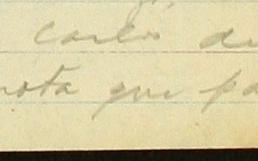 Carlos de
nota que pa